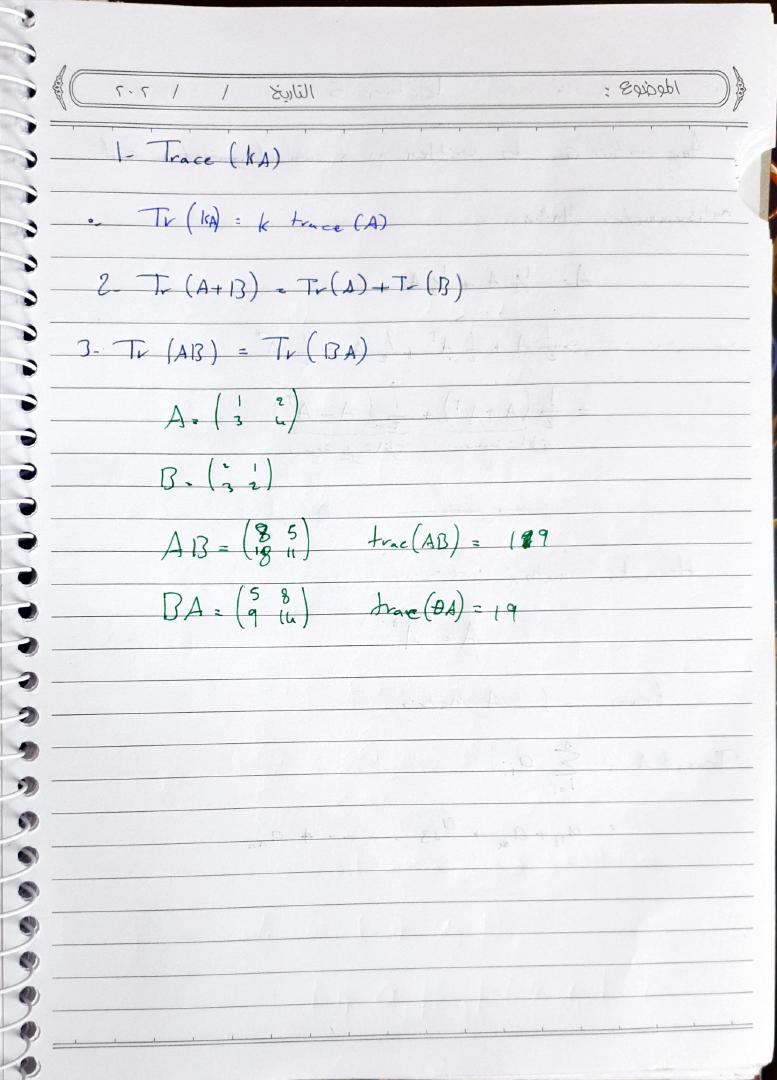 الموضوع : التاريخ / / ٢٠٢
1- Trace (kA)
Tr (kA) = k trace (A)
2- Tr (A+B) = Tr(A) + Tr (B)
3- Tr (AB) = Tr (BA)
A = ( 1 2
3 4 )
B = ( 2 1
3 2 )
AB = ( 8 5
18 11 ) trac(AB) = 19
BA = ( 5 8
9 14 ) trace(BA) = 19